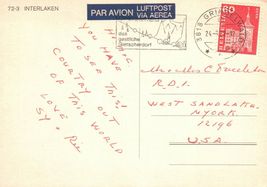 72-3 INTERLAKEN
PAR AVION LUFTPOST
VIA AEREA
das
gastliche
Gletscherdorf
3818 GRIN
60
HELVETIA
YOU HAVE
TO SEE THIS
COUNTRY
OUT OF THIS WORLD
LOVE
R.D.1.
WEST SANDLAKE,
N.YORK
12196
U.S.A.